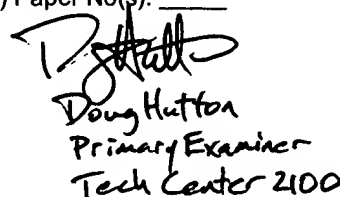 ) Paper No(s). _____
Doug Hutton
Primary Examiner
Tech Center 2100